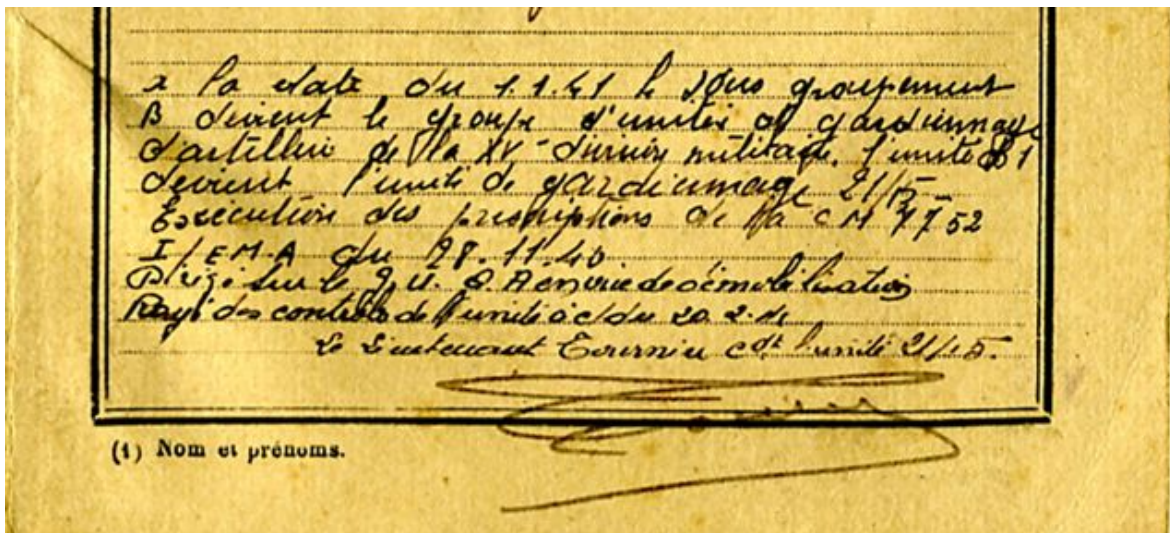 a la date du 1.1.41 le sous groupement
B devient le groupe d'unités de gardiennage
d'artillerie de la XV division militaire, l'unité B1
devient l'unité de gardiennage 21/15
Exécution des prescriptions de la C M 7752
I/EMA du 28.11.40
Dirigé sur le en vue de démobilisation
Rayé des contrôles de l'unité à c/du 20.2.41
Le Lieutenant Tournier cdt l'unité 21/15.
(1) Nom et prénoms.